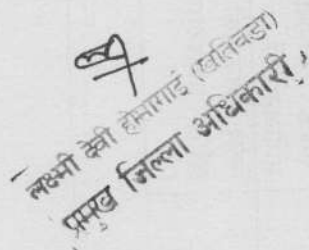 लक्ष्मी देवी हुमागाई (खतिवडा)
प्रमुख जिल्ला अधिकारी